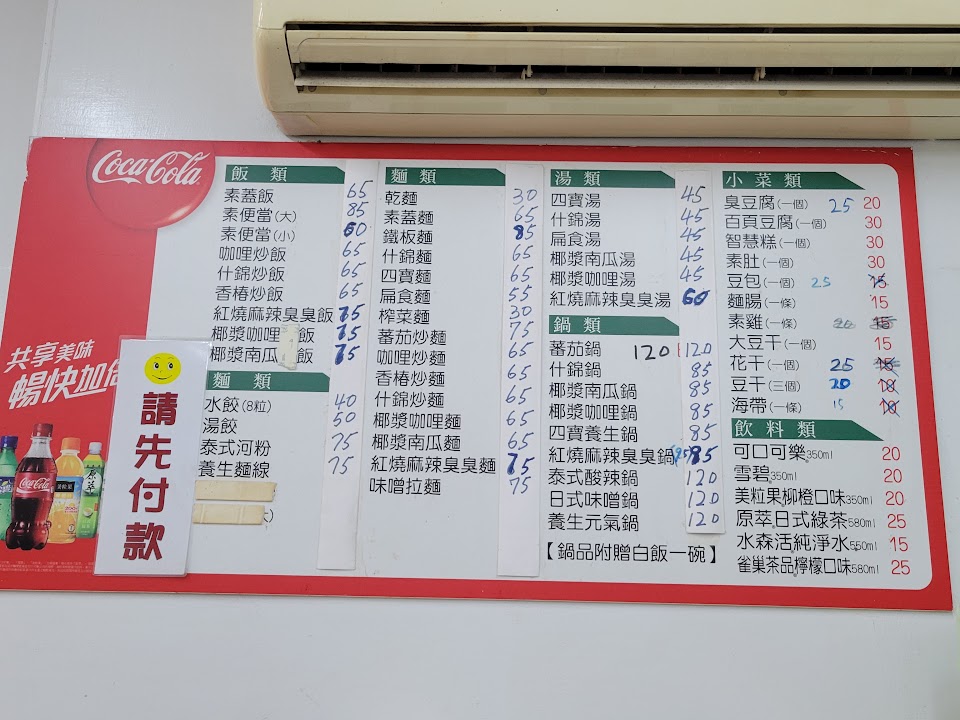 Coca-Cola
共享美味
暢快加倍
請先付款
飯類
素蓋飯 65
素便當(大) 85
素便當(小) 60
咖哩炒飯 65
什錦炒飯 65
香椿炒飯 65
紅燒麻辣臭臭飯 75
椰漿咖哩 飯 75
椰漿南瓜 飯 75
麵類
水餃(8粒) 40
湯餃 50
泰式河粉 75
養生麵線 75
麵類
乾麵 30
素蓋麵 65
鐵板麵 85
什錦麵 65
四寶麵 65
扁食麵 55
榨菜麵 30
蕃茄炒麵 75
咖哩炒麵 65
香椿炒麵 65
什錦炒麵 65
椰漿咖哩麵 65
椰漿南瓜麵 65
紅燒麻辣臭臭麵 75
味噌拉麵 75
湯類
四寶湯 45
什錦湯 45
扁食湯 45
椰漿南瓜湯 45
椰漿咖哩湯 45
紅燒麻辣臭臭湯 60
鍋類
蕃茄鍋 120 120
什錦鍋 85
椰漿南瓜鍋 85
椰漿咖哩鍋 85
四寶養生鍋 85
紅燒麻辣臭臭鍋 95
泰式酸辣鍋 120
日式味噌鍋 120
養生元氣鍋 120
【鍋品附贈白飯一碗】
小菜類
臭豆腐(一個) 25 20
百頁豆腐(一個) 30
智慧糕(一個) 30
素肚(一個) 30
豆包(一個) 25 15
麵腸(一條) 15
素雞(一條) 20 15
大豆干(一個) 15
花干(一個) 25 15
豆干(三個) 20 10
海帶(一條) 15 10
飲料類
可口可樂350ml 20
雪碧350ml 20
美粒果柳橙口味350ml 20
原萃日式綠茶580ml 25
水森活純淨水550ml 15
雀巢茶品檸檬口味580ml 25